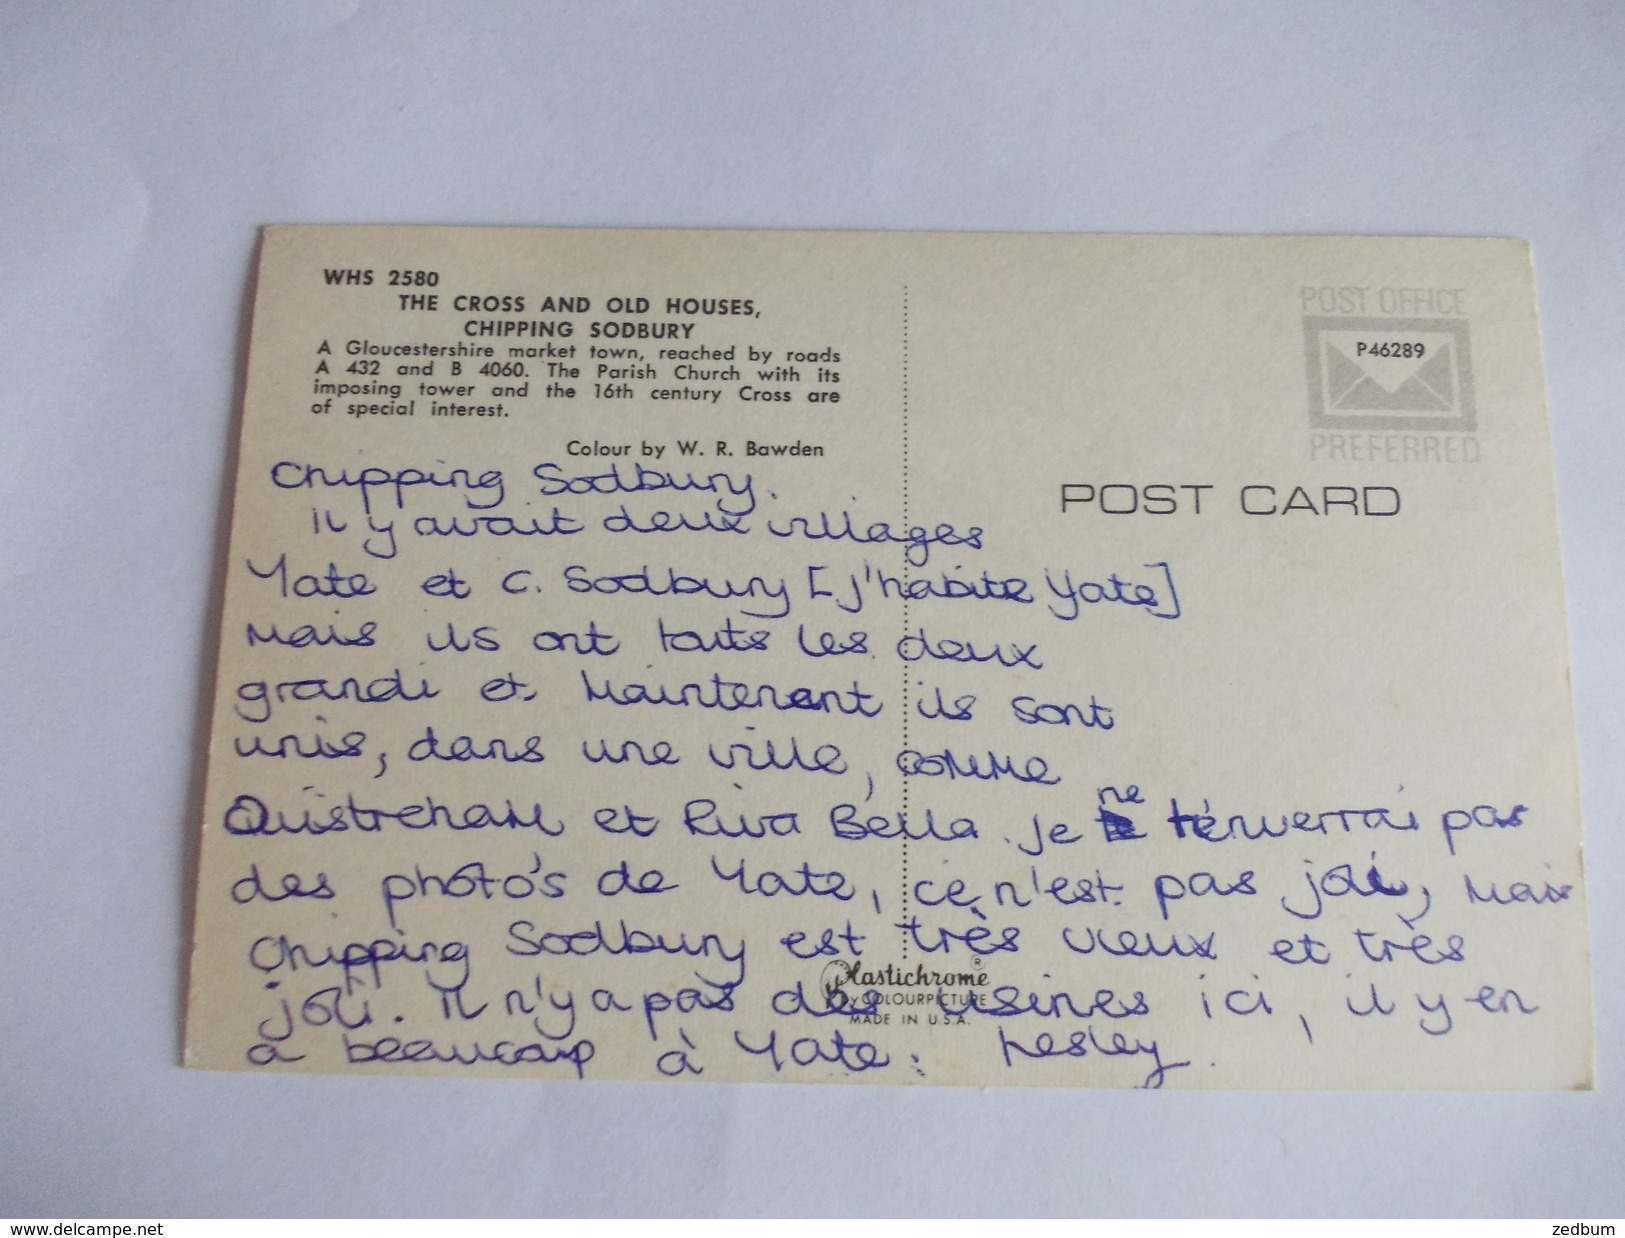 WHS 2580
THE CROSS AND OLD HOUSES,
CHIPPING SODBURY
A Gloucestershire market town, reached by roads
A 432 and B 4060. The Parish Church with its
imposing tower and the 16th century Cross are
of special interest.
Colour by W. R. Bawden
POST OFFICE
P46289
PREFERRED
POST CARD
Chipping Sodbury.
Il y avait deux villages
Yate et C. Sodbury [j'habite Yate]
Mais ils ont touts les deux
grandi et Maintenant ils sont
unis, dans une ville, comme
Ouistreham et Riva Bella. Je ne t'enverrai pas
des photo's de Yate, ce n'est pas joli, Mais
Chipping Sodbury est très vieux et très
joli. Il n'y a pas des usines ici, il y en
a beaucoup à Yate. Lesley.
Plastichrome ®
by COLOURPICTURE
MADE IN U.S.A.
www.delcampe.net
zedbum